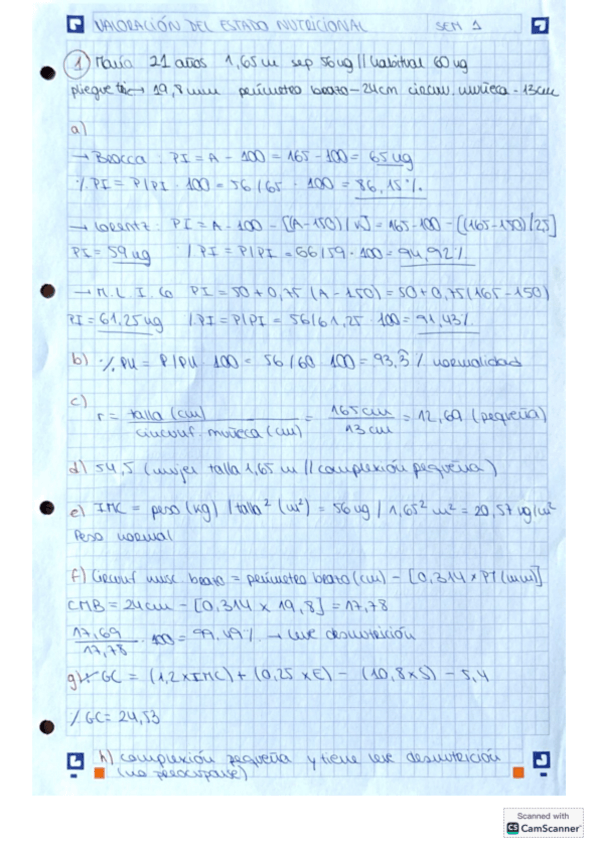 VALORACIÓN DEL ESTADO NUTRICIONAL SEM 1
1 María 21 años 1,65 m sep 56 kg // habitual 60 kg
pliegue tri → 19,8 mm perímetro brazo - 24cm circun. muñeca - 13cm
a)
→ Brocca : PI = A - 100 = 165 - 100 = 65 kg
% PI = P/PI · 100 = 56/65 · 100 = 86,15 %.
→ Lorentz : PI = A - 100 - [(A-150)/K] = 165-100 - [(165-150)/25]
PI = 59 kg % PI = P/PI = 56/59 · 100 = 94,92%
→ M.L.I. Co PI = 50 + 0,75 (A - 150) = 50 + 0,75 (165 - 150)
PI = 61,25 kg % PI = P/PI = 56/61,25 · 100 = 91,43%.
b) % PH = P/PH · 100 = 56/60 · 100 = 93,3 % normalidad
c)
r = talla (cm) / circunf. muñeca (cm) = 165 cm / 13 cm = 12,69 (pequeña)
d) 54,5 (mujer talla 1,65 m // complexión pequeña)
e) IMC = peso (kg) / talla² (m²) = 56 kg / 1,65² m² = 20,57 kg/m²
Peso normal
f) Circunf musc brazo = perímetro brazo (cm) - [0,314 x PT (mm)]
CMB = 24cm - [0,314 x 19,8] = 17,78
17,69 / 17,78 · 100 = 99,49% → leve desnutrición
g) % GC = (1,2 x IMC) + (0,25 x E) - (10,8 x S) - 5,4
% GC = 24,53
h) complexión pequeña y tiene leve desnutrición
(no preocuparse)
Scanned with
CS CamScanner